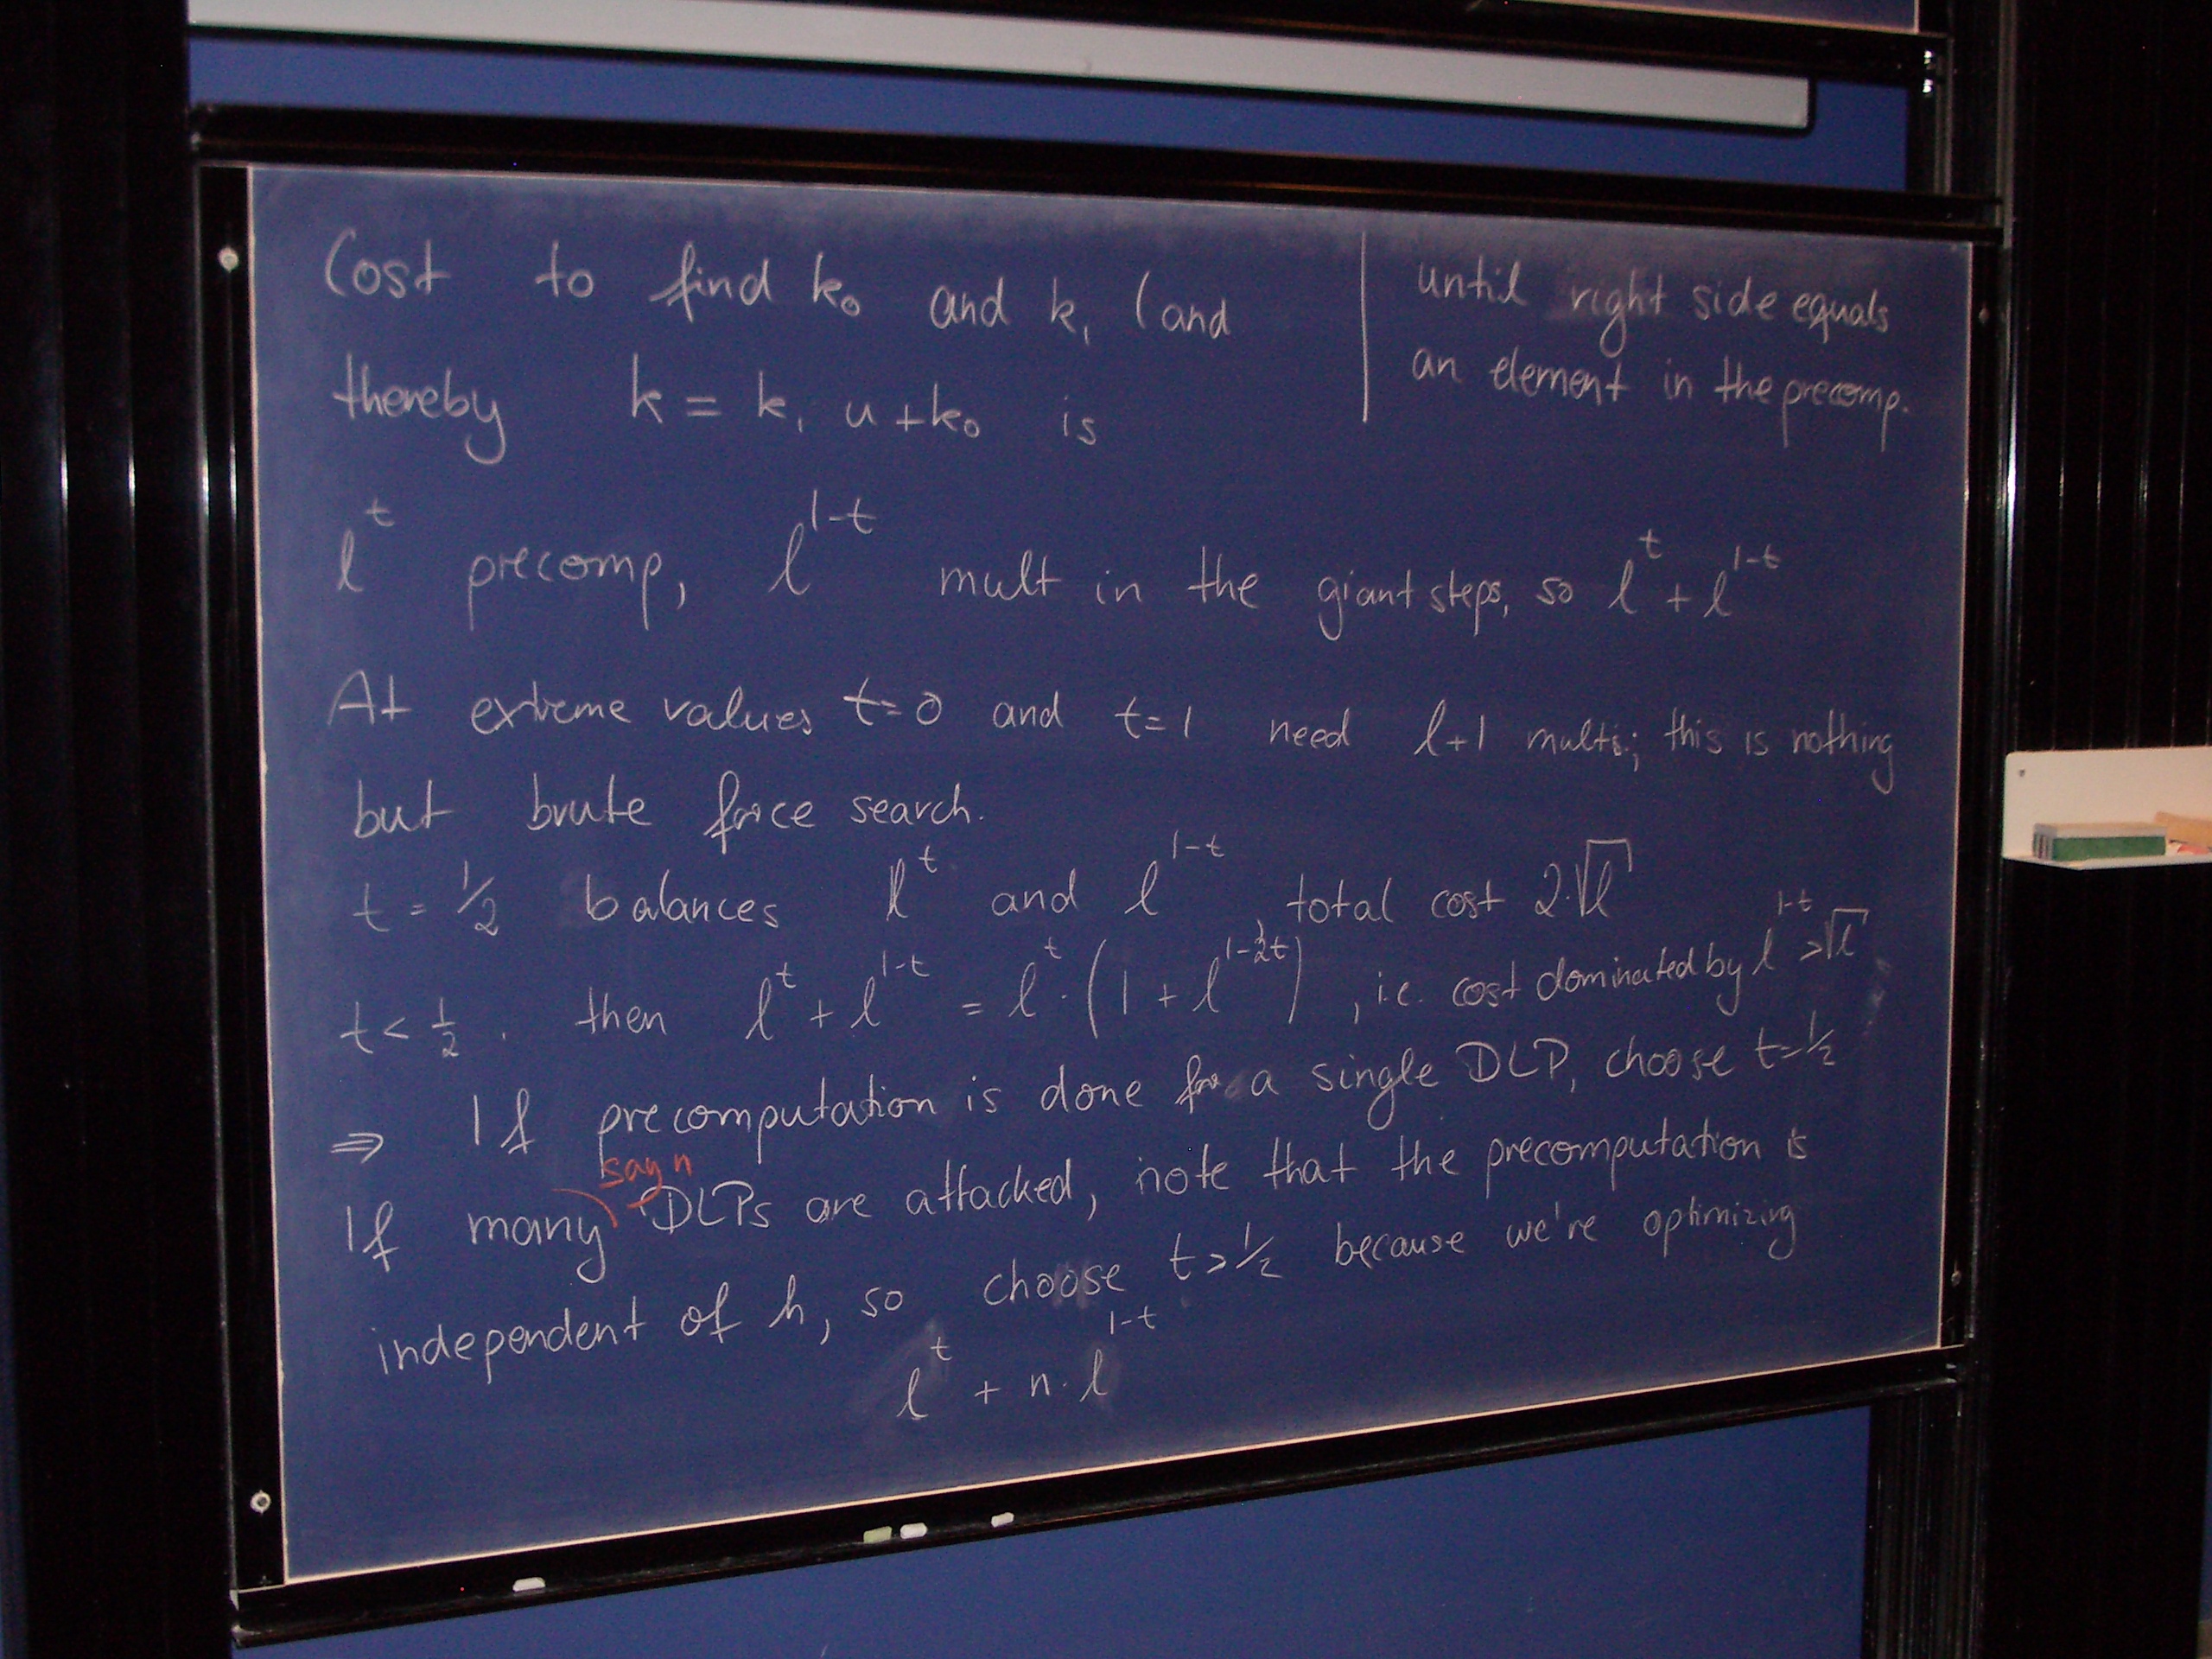 Cost to find k₀ and k₁ (and
thereby k = k₁ u + k₀ is
until right side equals
an element in the precomp.
l^t precomp, l^{1-t} mult in the giant steps, so l^t + l^{1-t}
At extreme values t=0 and t=1 need l+1 mults; this is nothing
but brute force search.
t = 1/2 balances l^t and l^{1-t}, total cost 2·√l
t < 1/2. then l^t + l^{1-t} = l^t · (1 + l^{1-2t}), i.e. cost dominated by l^{1-t} > √l
⇒ If precomputation is done for a single DLP, choose t=1/2
say n
If many DLPs are attacked, note that the precomputation is
independent of h, so choose t > 1/2 because we're optimizing
l^t + n·l^{1-t}